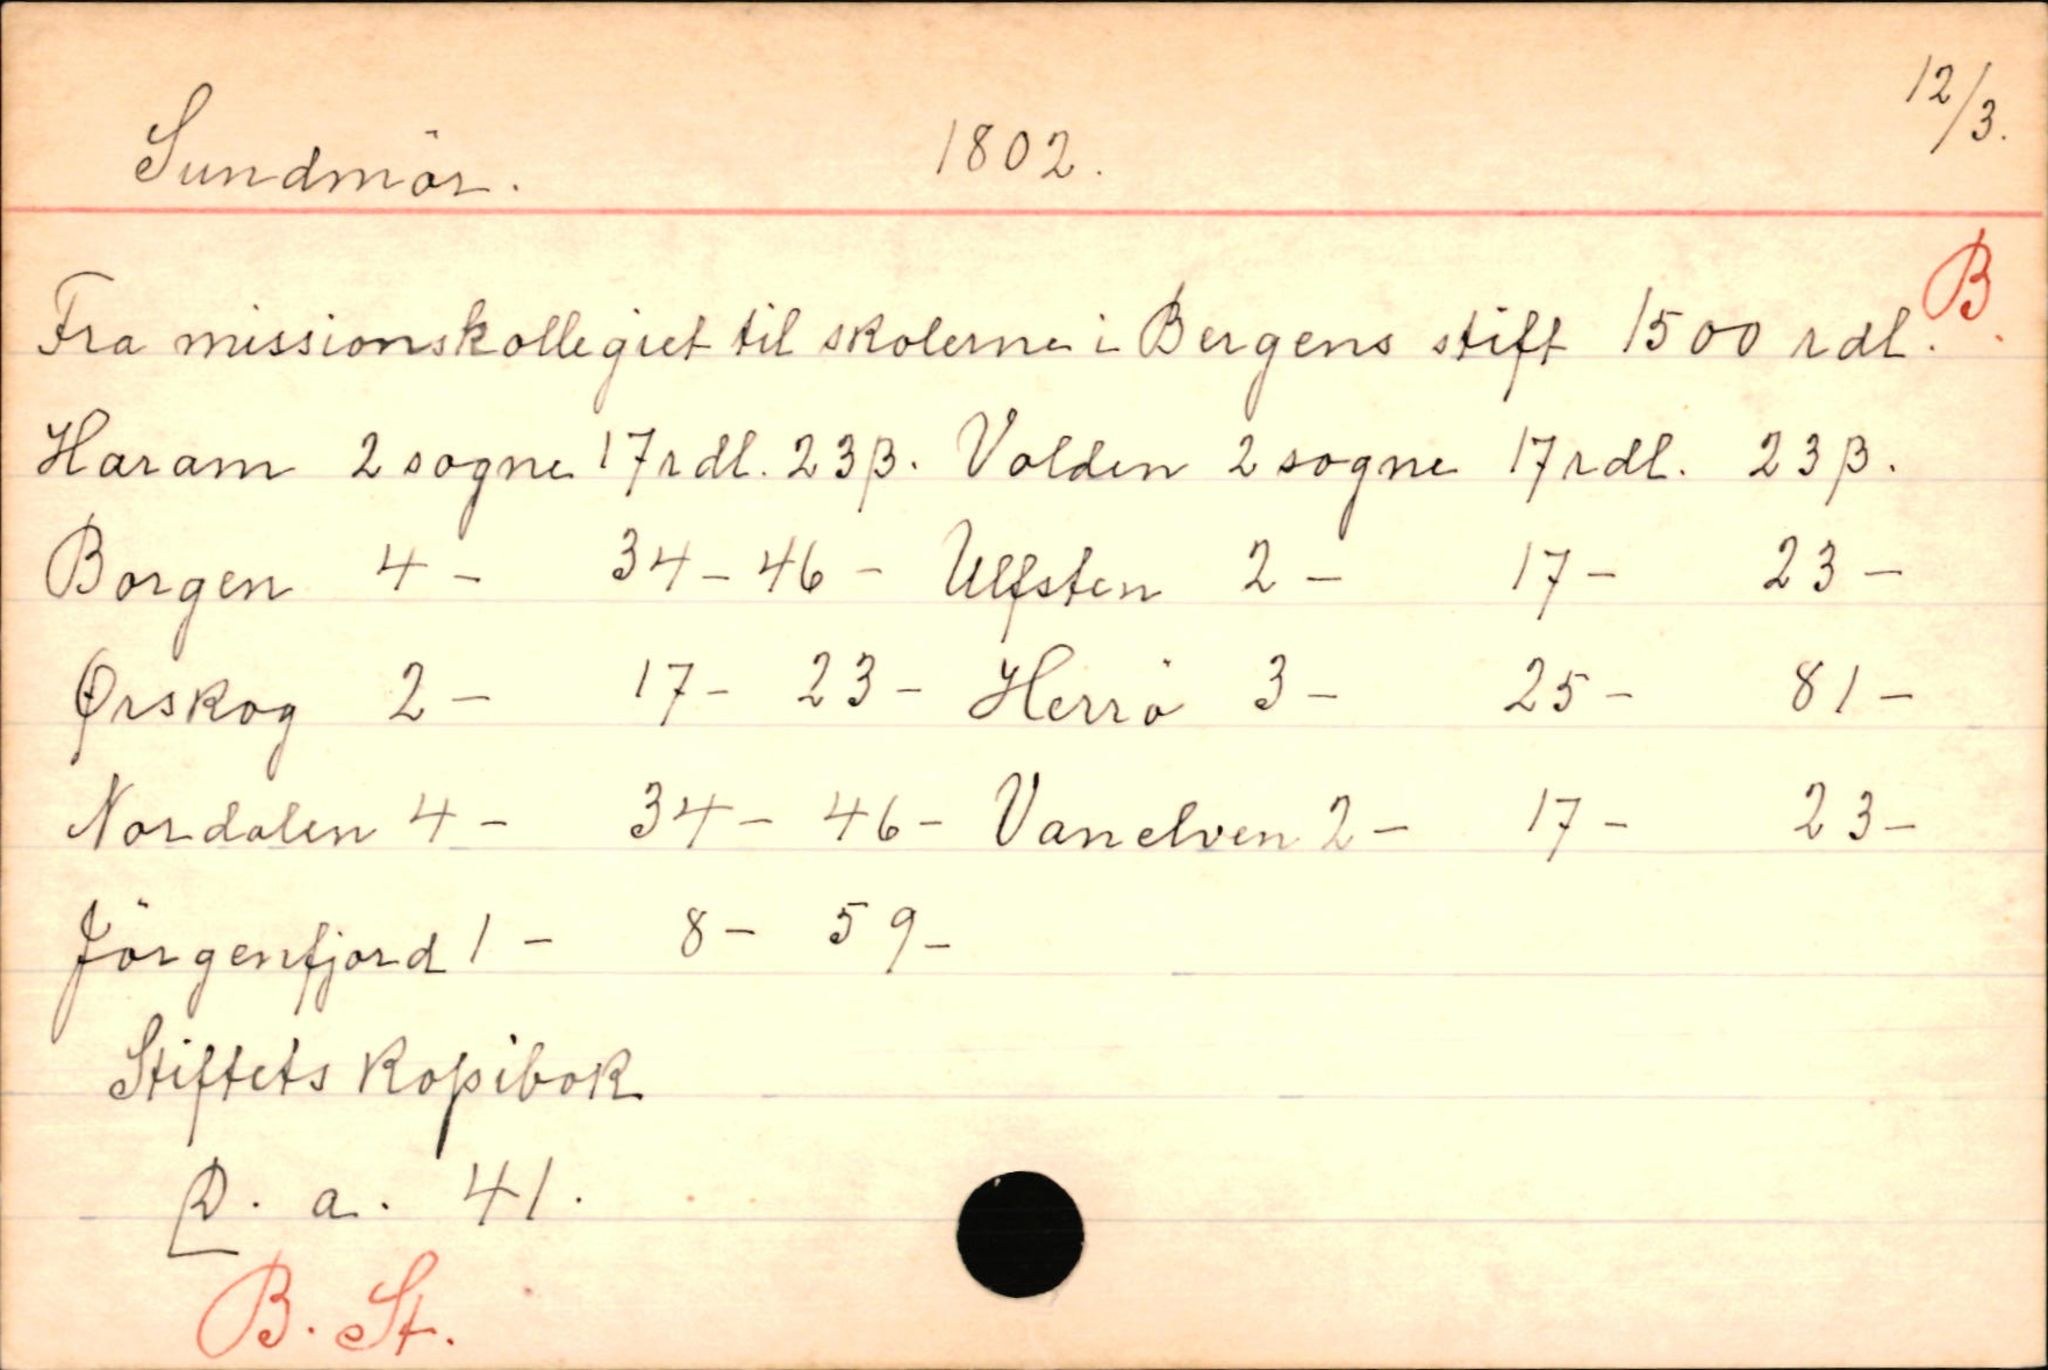 Sundmör. 1802. 12/3.
B
Fra missionskollegiet til skolerne i Bergens stift 1500 rdl.
Haram 2 sogne 17 rdl. 23 β. Volden 2 sogne 17 rdl. 23 β.
Borgen 4 - 34 - 46 - Ulfsten 2 - 17 - 23 -
Ørskog 2 - 17 - 23 - Herrö 3 - 25 - 81 -
Nordalen 4 - 34 - 46 - Vanelven 2 - 17 - 23 -
Jörgenfjord 1 - 8 - 59 -
Stiftets kopibok
D. a. 41.
B. St.